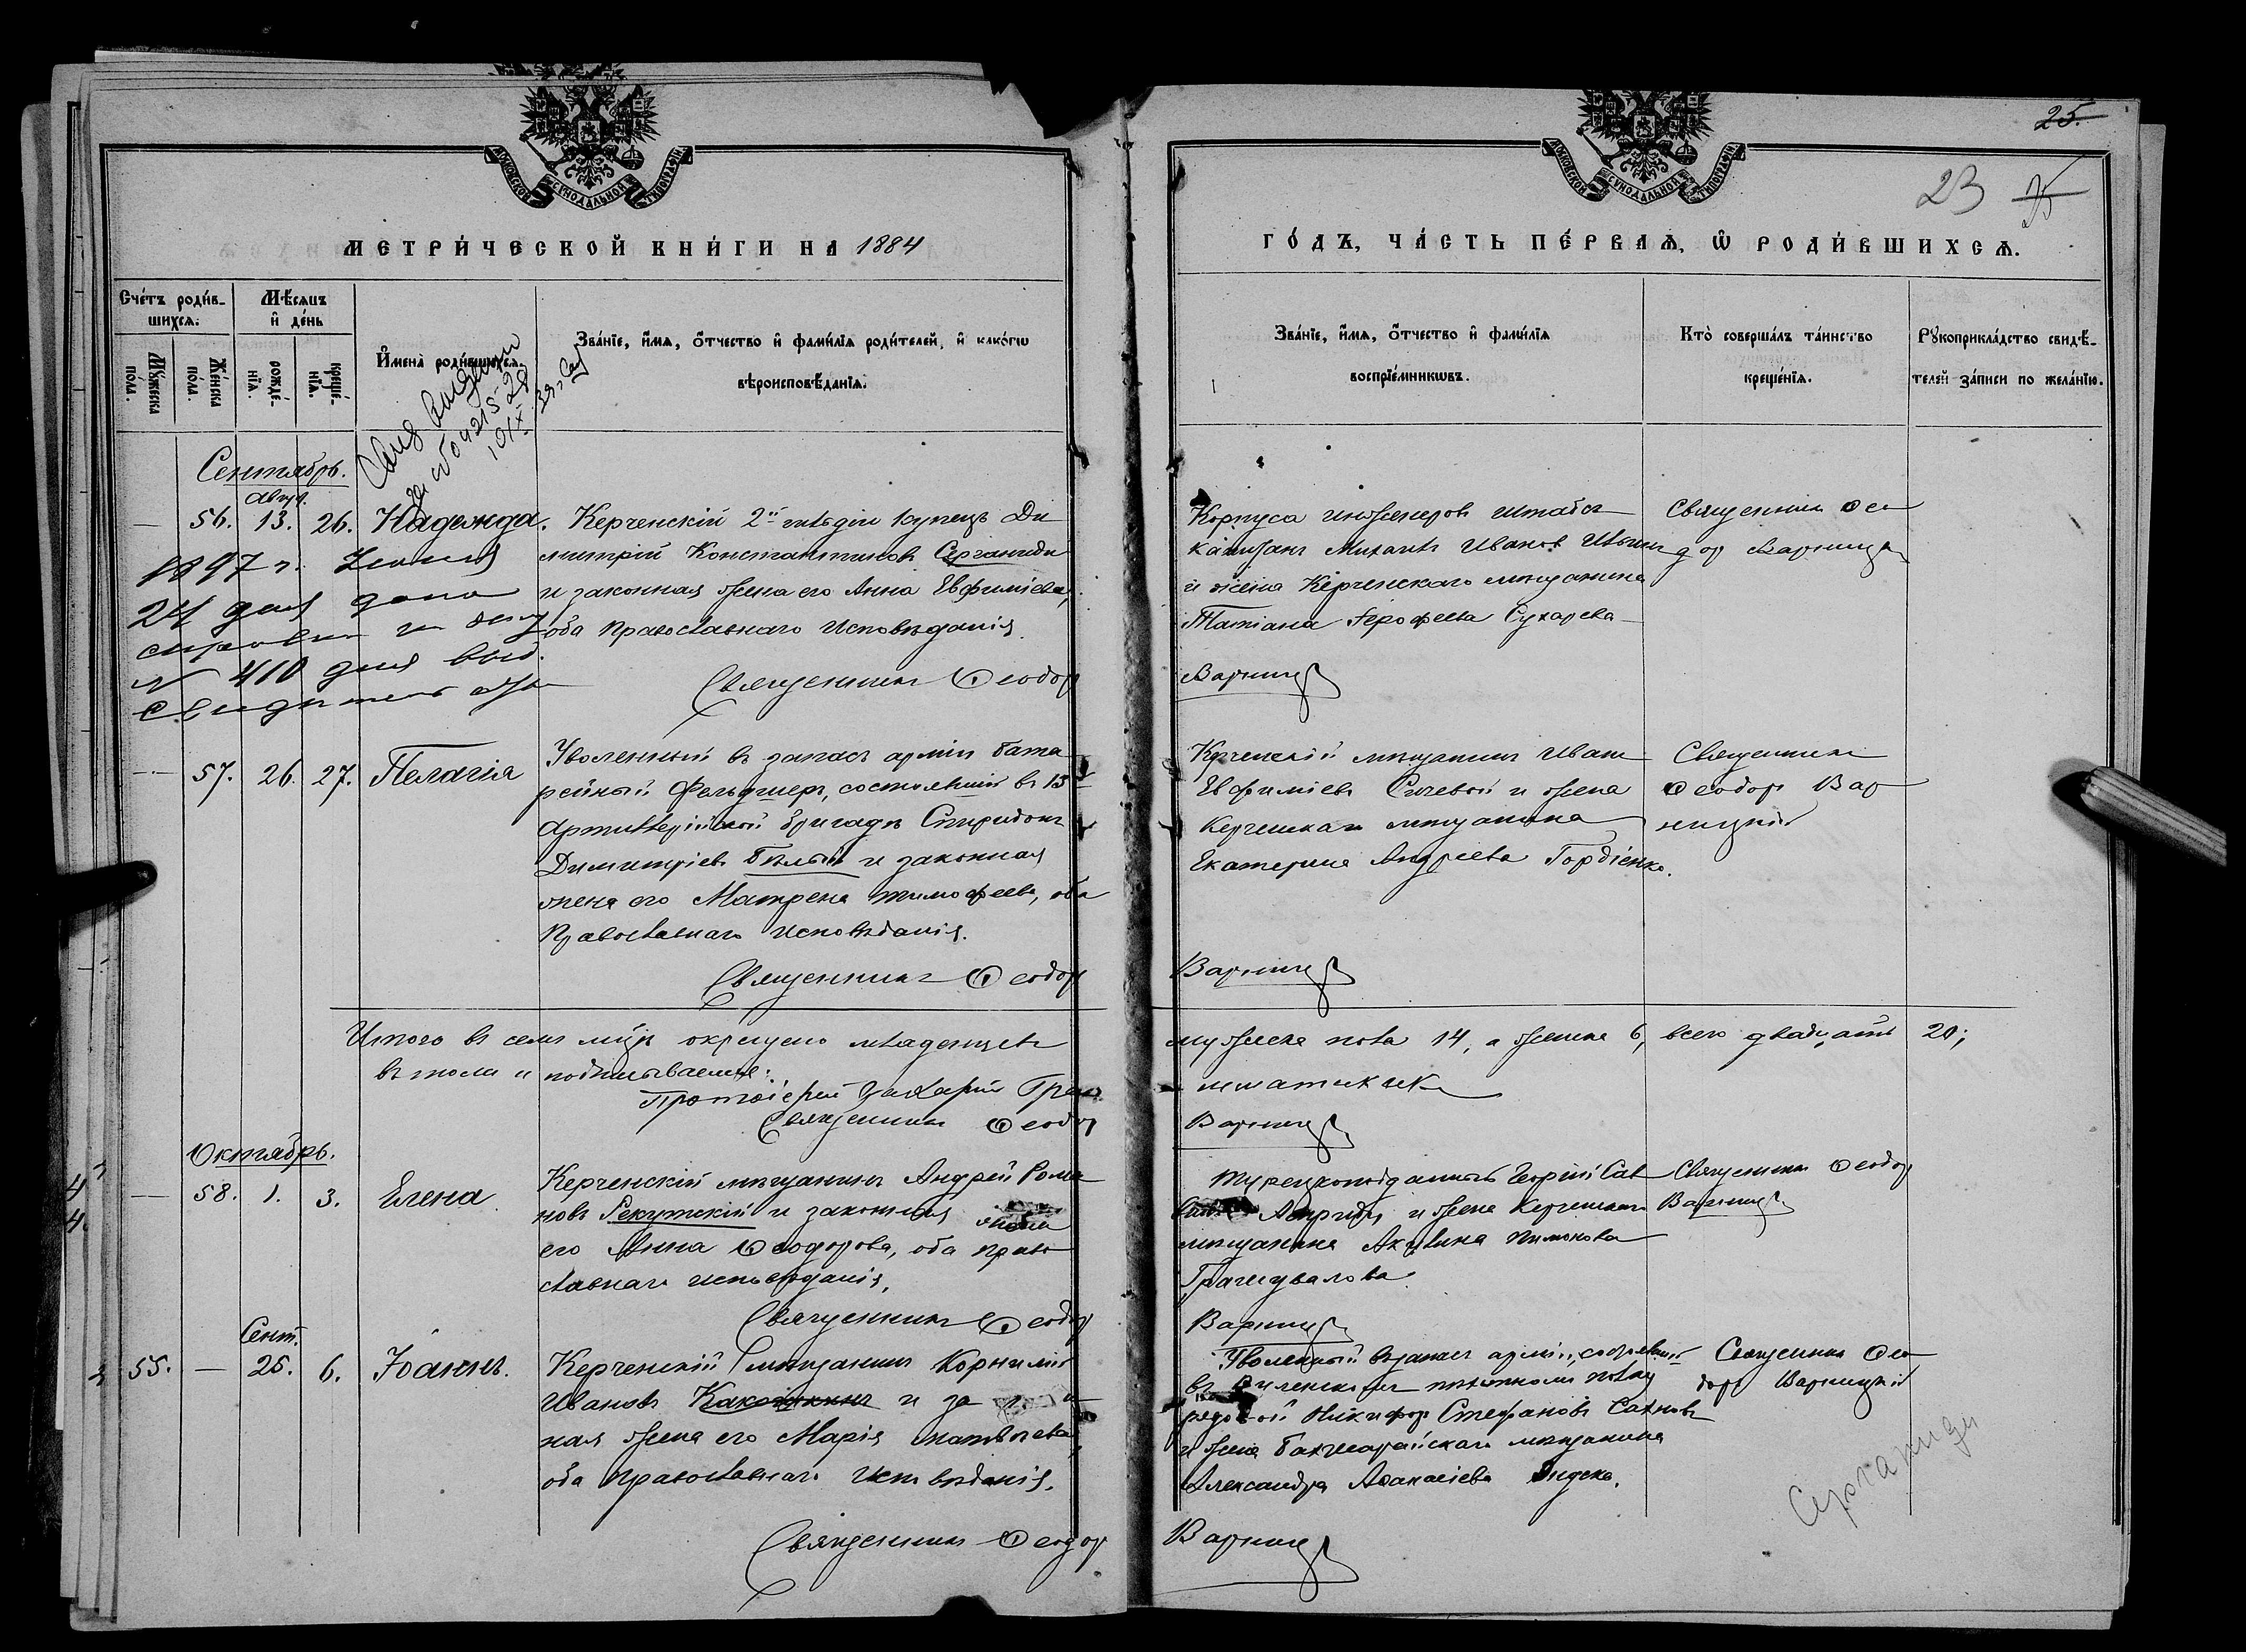 МОСКОВСКОЙ СУНОДАЛЬНОЙ ТИПОГРАФІИ
МЕТРИ́ЧЕСКОЙ КНИ́ГИ НА 1884
Сче́тъ роди́вшихсѧ.
Мѣ́сѧцъ и҆ де́нь
Мꙋ́жеска по́ла.
Же́нска по́ла.
рожде́нїѧ.
креще́нїѧ.
И҆мена̀ роди́вшихсѧ.
Зва́нїе, и҆́мѧ, ѻ҆́тчество и҆ фами́лїѧ роди́телей, и҆ како́гѡ
вѣроисповѣ́данїѧ.
Сентябрь.
Авгус.
— 56. 13. 26. Надежда.
Керченскій 2й гильдіи купецъ Ди
митрій Константиновъ Серганиди
и законная жена его Анна Евфиміева,
оба Православнаго Исповѣданія.
Священникъ Ѳеодоръ
1897 г. Іюня
24 дня дана
справка за
№ 410 для выд.
— 57. 26. 27. Пелагія
Уволенный въ запасъ арміи бата
рейный Фельдшеръ, состоявшій въ 13
Артиллерійской бригадѣ Спиридонъ
Димитріевъ Бѣлый и законная
жена его Матрена Тимофеева, оба
Православнаго Исповѣданія.
Священникъ Ѳеодоръ
Итого въ семъ мцѣ окрещено младенцевъ
въ томъ и подписываемся:
Протоіерей Захарій
Священникъ Ѳеодоръ
Октябрь.
— 58. 1. 3. Елена
Керченскій мѣщанинъ Андрей Рома
новъ Рекутскій и законная жена
его Анна Ѳеодорова, оба право
славнаго исповѣданія.
Священникъ Ѳеодоръ
Сент.
55. — 25. 6. Іоаннъ.
Керченскій мѣщанинъ Корнилій
Ивановъ и за
ная жена его Марія Матвѣева
оба православнаго Исповѣданія.
Священникъ Ѳеодоръ
25.
23
МОСКОВСКОЙ СУНОДАЛЬНОЙ ТИПОГРАФІИ
ГО́ДЪ, ЧА́СТЬ ПЕ́РВАѦ, Ѽ РОДИ́ВШИХСѦ.
Зва́нїе, и҆́мѧ, ѻ҆́тчество и҆ фами́лїѧ
воспрїе́мникѡвъ.
Кто̀ соверша́лъ та́инство
креще́нїѧ.
Рꙋкоприкла́дство свидѣ́телей за́писи по жела́нїю.
Корпуса инженеровъ штабсъ
капитанъ Михаилъ Ивановъ
и жена Керченскаго мѣщанина
Татіана Ерофеева Сухарева
Варниц
Священникъ Ѳео
доръ Варницк
Керченскій мѣщанинъ Иванъ
Евфиміевъ Сычевой и жена
Керченскаго мѣщанина
Екатерина Андреева Гордіенко.
Варниц
Священникъ
Ѳеодоръ Вар
ницкій
мужеска пола 14, а женска 6, всего двадцать 20;
Варниц
Турецкоподанный Георгій Сав
и жена Керченскаго
мѣщанина Акулина Пимонова
Варниц
Священникъ Ѳеодоръ
Варниц
Уволенный въ запасъ арміи,
въ Виленскомъ пѣхотномъ полку
рядовой Никифоръ Стефановъ Сахновъ
и жена Бахчисарайскаго мѣщанина
Александра Аѳанасіева
Варниц
Священникъ Ѳео
доръ Варницкій
Серганиди